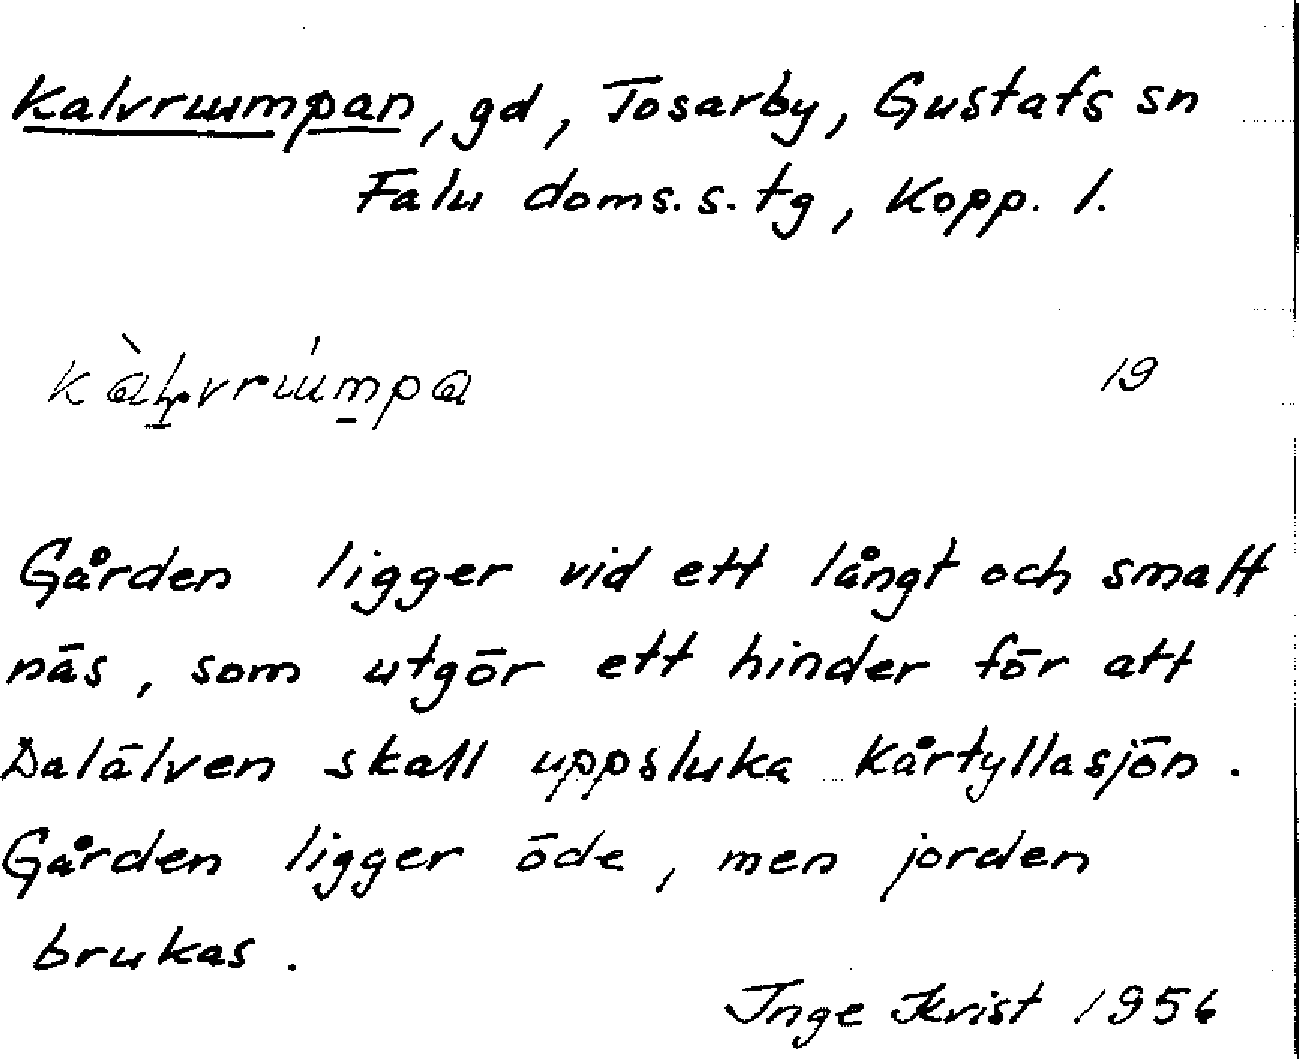 Kalvrumpan, gd, Tosarby, Gustafs sn
Falu doms. s. tg, Kopp. l.
19
Gården ligger vid ett långt och smalt
näs, som utgör ett hinder för att
Dalälven skall uppsluka Kårtyllasjön.
Gården ligger öde, men jorden
brukas.
Inge Kvist 1956